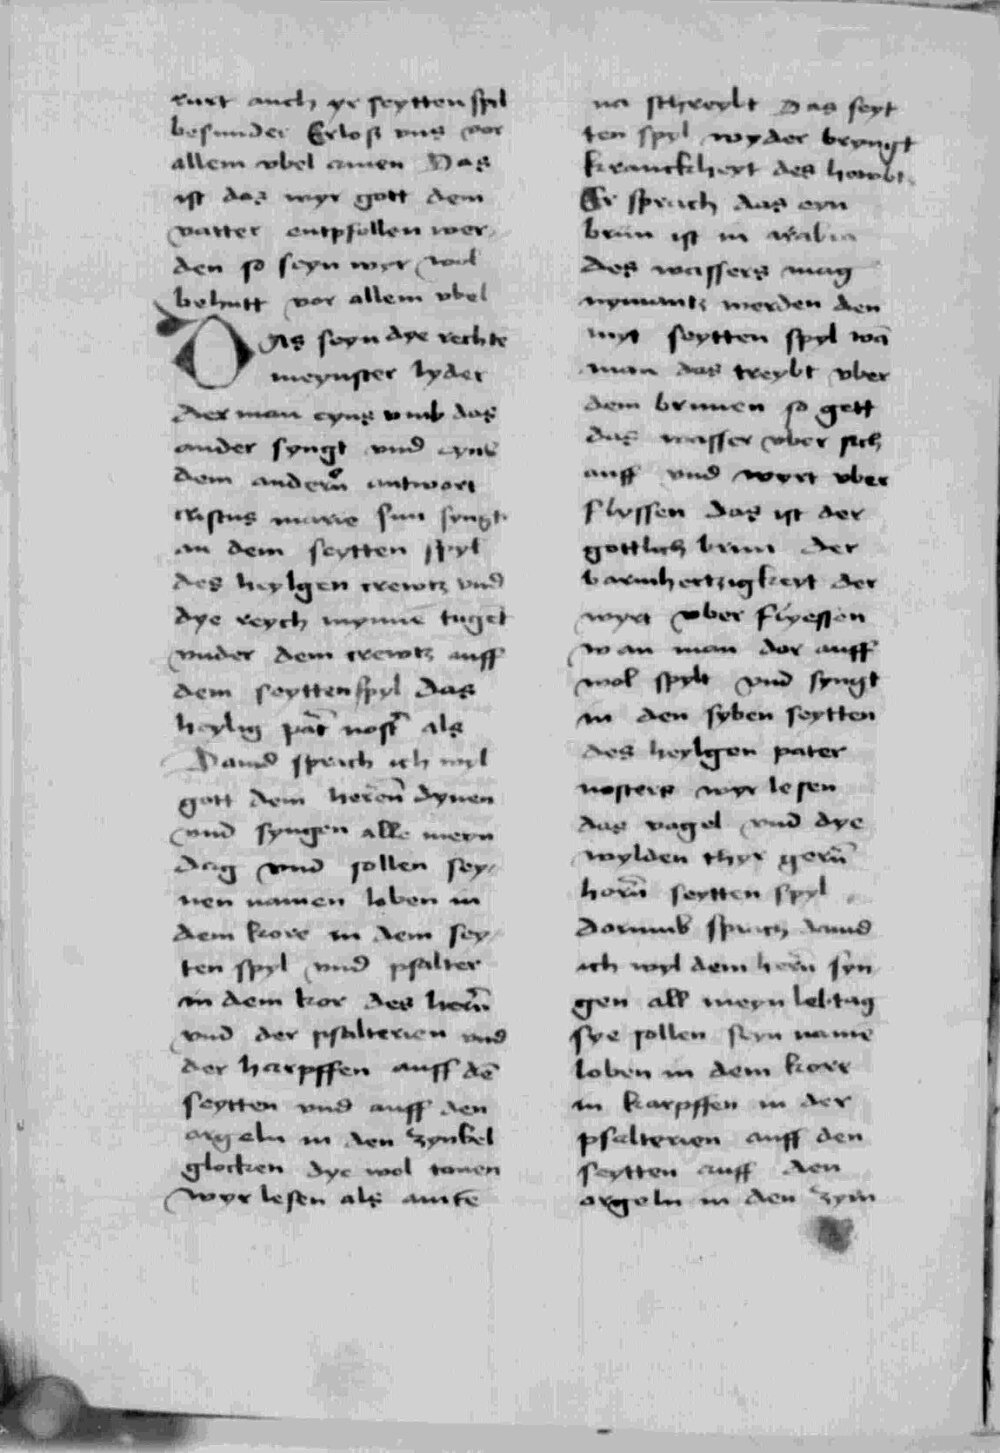 rurt auch yr seytten spil
besunder Erloß vns vor
allem vbel amen Das
ist das wyr gott dem
vatter entpfollen wer
den so seyn wyr wol
behutt vor allem vbel
Das seyn dye rechtē
meynster lyder
der man eyns vmb das
ander syngt vnd eyns
dem andern̄ antwort
cristus marie sun syngt
an dem seytten spyl
des heylgen crewtz vnd
dye reych mynne tuget
vnder dem crewtz auff
dem seytten spyl das
heylig pat̄ nost̄ als
Dauid sprach ich wyl
gott dem heren̄ dynen
vnd syngen alle meyn
dag vnd sollen sey
nen namen loben in
dem kore in dem sey
ten spyl vnd psalter
in dem kor des hern̄
vnd der psalterien vnd
der harpffen auff dē
seytten vnd auff den
orgeln in den zynbel
glocken dye wol tonen
wyr lesen als auicē
na schreybt Das seyt
ten spyl wyder bryngt
kranckheyt des howbt
Er sprach das eyn
brun ist in arabia
des wassers mag
nymantz werden den
myt seytten spyl wā
man das treybt vber
dem brunnen so gett
das wasser vber sich
auff vnd wyrt vber
flyssen das ist der
gottlich brun der
barmhertzigkeyt der
wyrt vber flyessen
wan man dor auff
wol spylt vnd syngt
in den syben seytten
des heylgen pater
nosters wyr lesen
das vagel vnd dye
wylden thyr gern̄
horn̄ seytten spyl
dorumb sprach dauid
ich wyl dem hern̄ syn
gen all meyn lebtag
sye sollen seyn namē
loben in dem korr
in karpffen in der
psalterien auff den
seytten auff den
orgeln in den zym